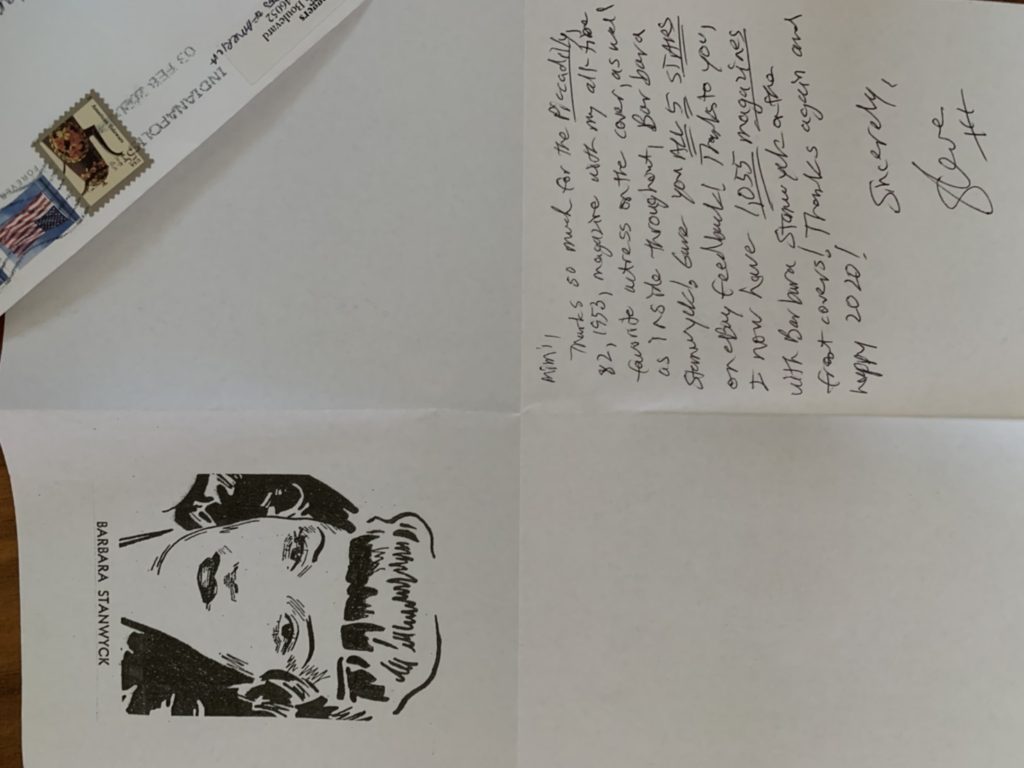 Mimi,
Thanks so much for the Piccadilly
82, 1953, magazine with my all-time
favorite actress on the cover, as well
as inside throughout, Barbara
Stanwyck! Gave you ALL 5 STARS
on eBay feedback! Thanks to you,
I now have 1055 magazines
with Barbara Stanwyck on the
front covers! Thanks again and
happy 2020!
Sincerely,
Steve
BARBARA STANWYCK
Boulevard
INDIANAPOL
03 FEB
FOREVER